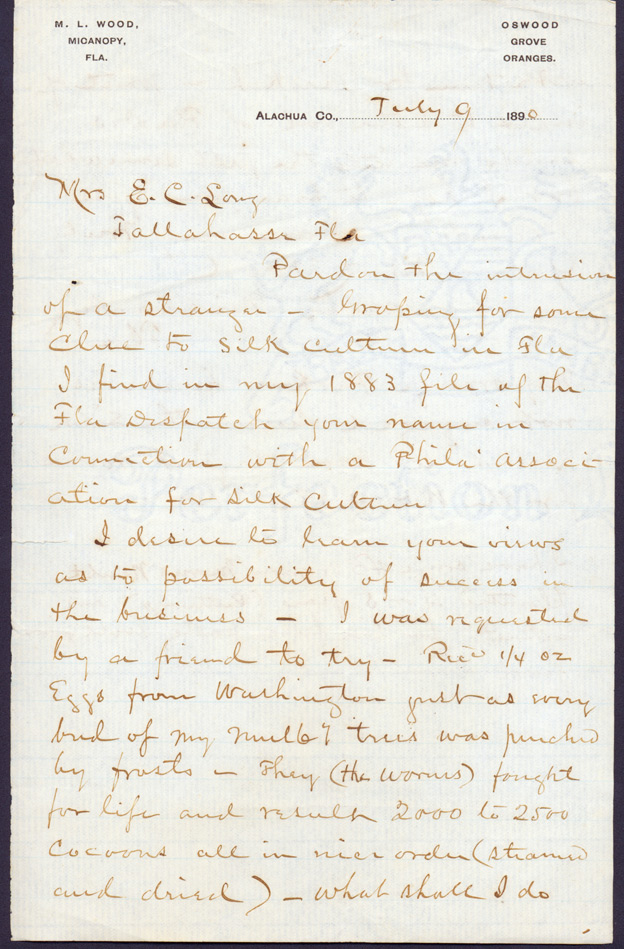 M. L. WOOD,
MICANOPY,
FLA.
OSWOOD
GROVE
ORANGES.
ALACHUA CO., July 9 1890
Mrs E. C. Long
Tallahasse Fla
Pardon the intrusion
of a stranger – Groping for some
Clue to Silk Culture in Fla
I find in my 1883 file of the
Fla Dispatch your name in
Connection with a Phila' associ-
ation for Silk Culture
I desire to learn your views
as to possibility of success in
the business – I was requested
by a friend to try – Rec'd 1/4 oz
Eggs from Washington just as every
bud of my mulb'y trees was pinched
by frosts – They (the worms) fought
for life and result 2000 to 2500
Cocoons all in nice order (steamed
and dried) – what shall I do